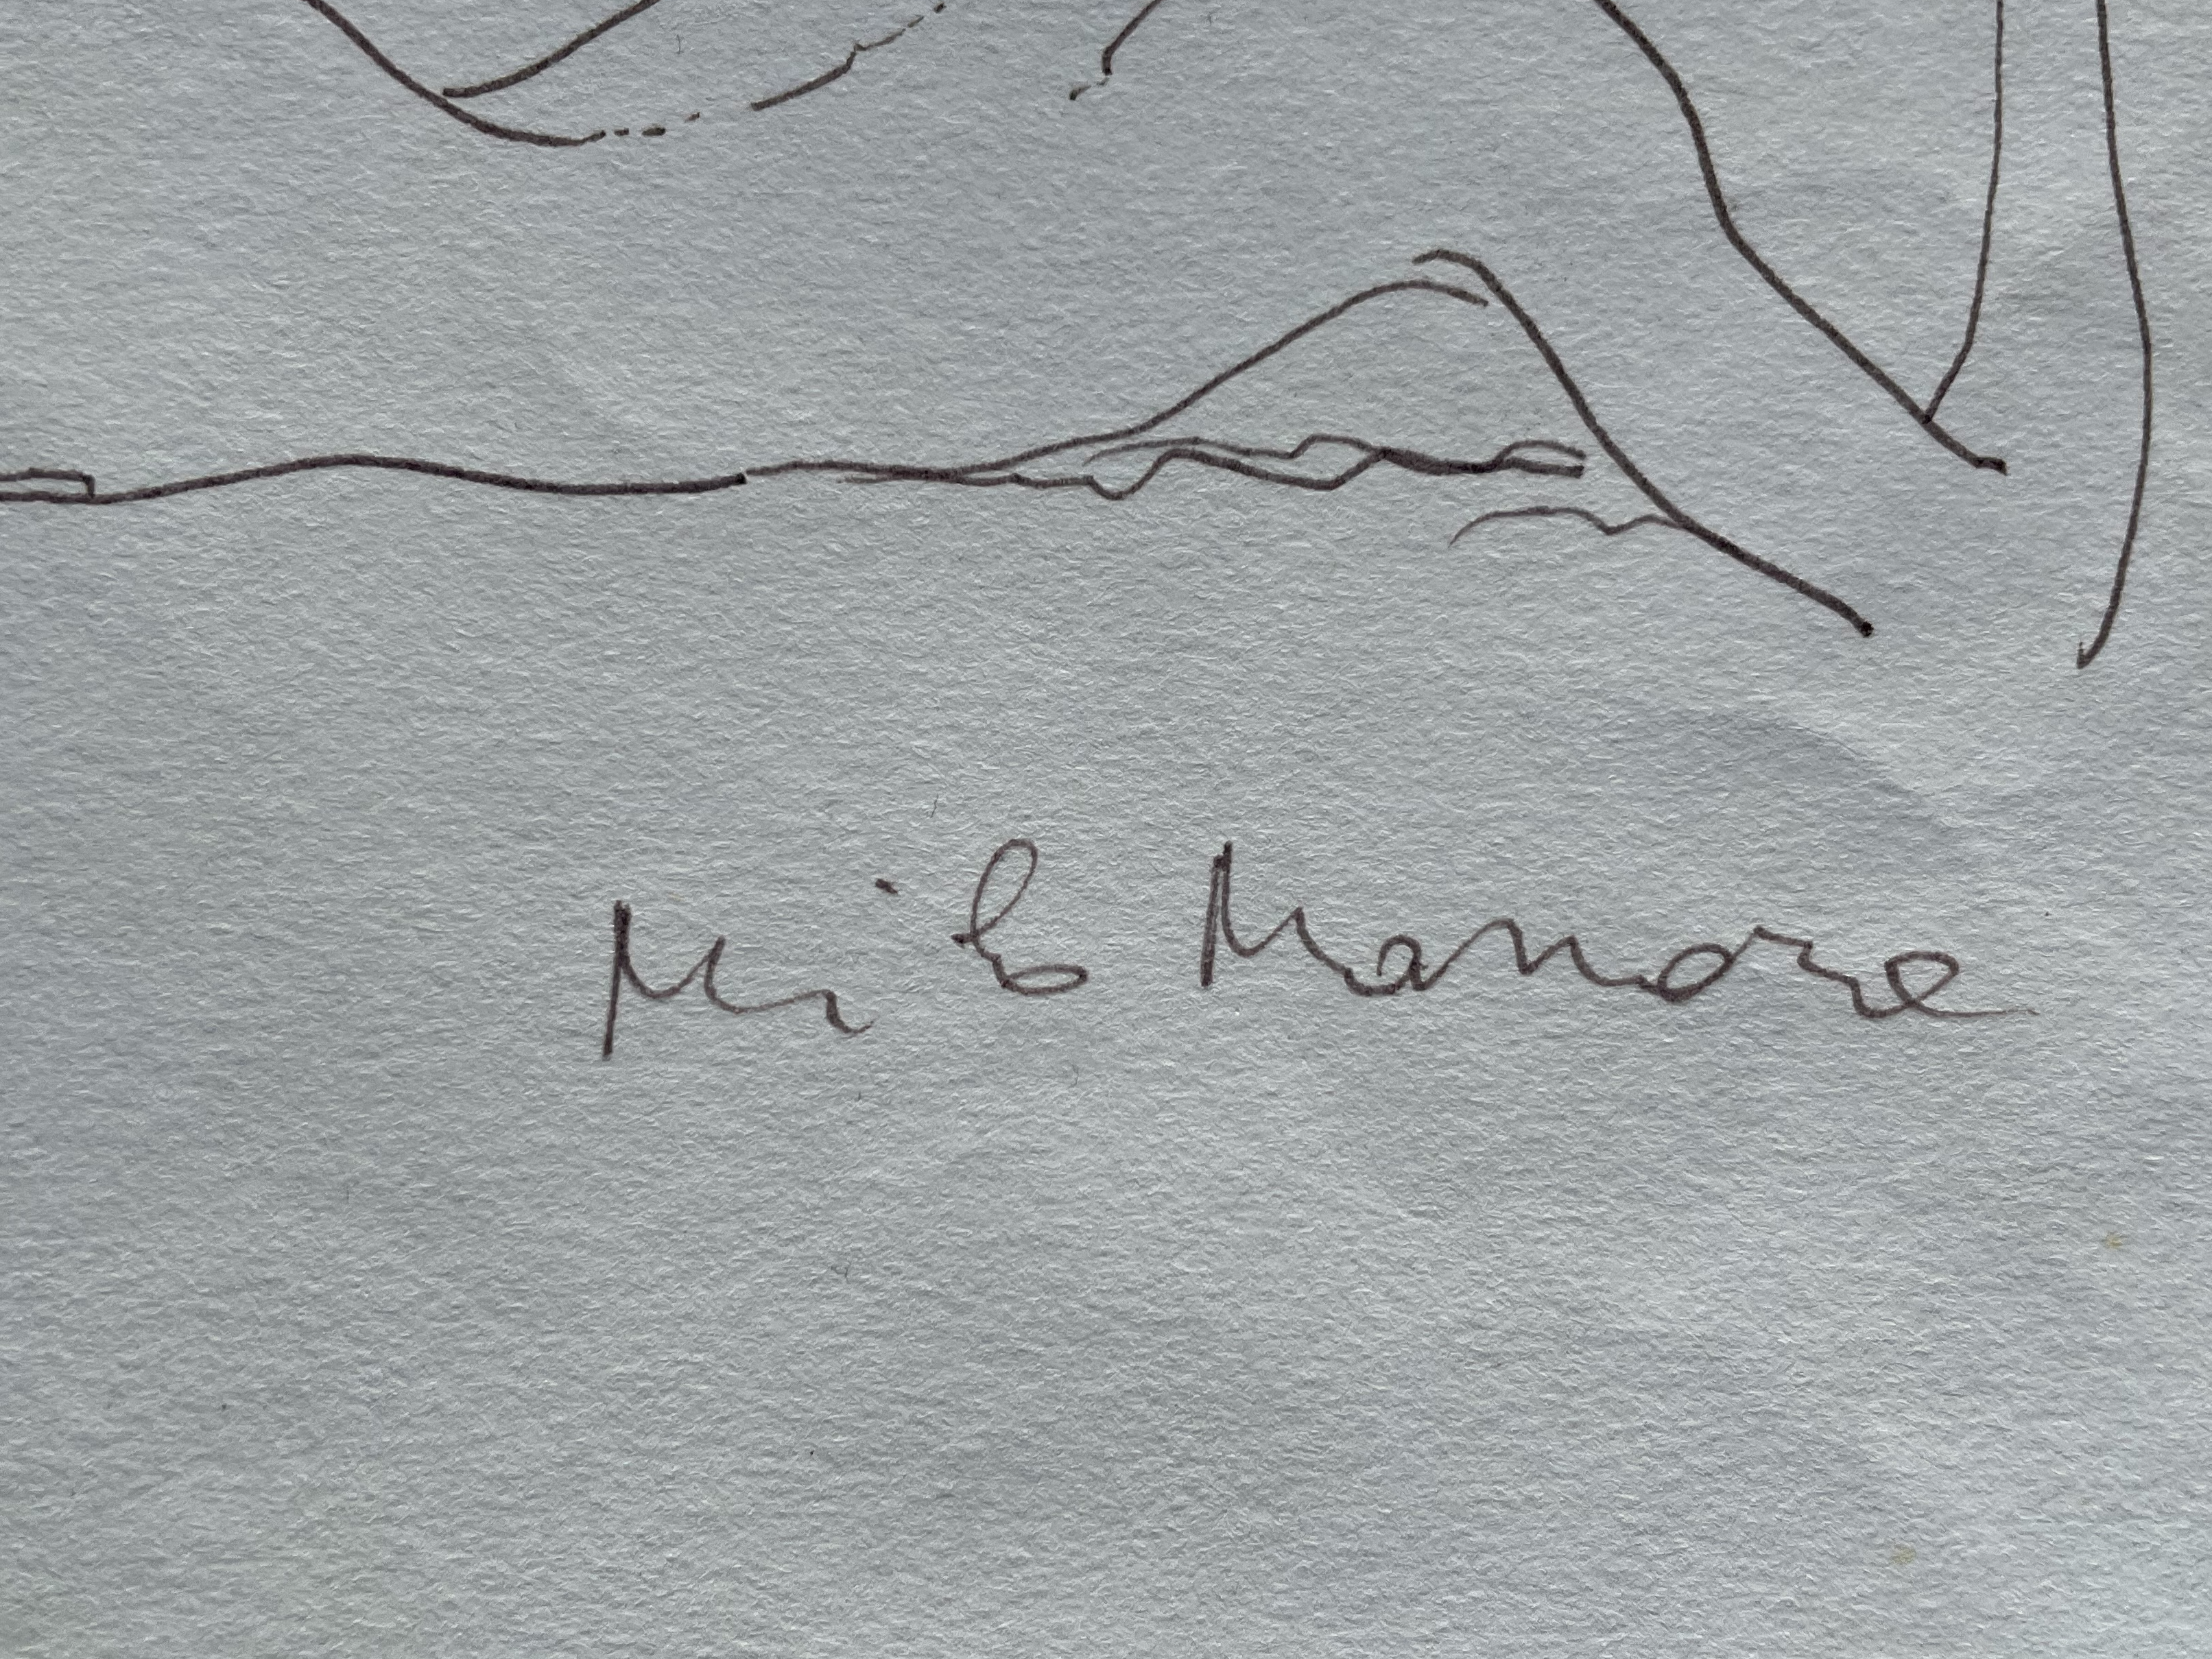 Milo Manara